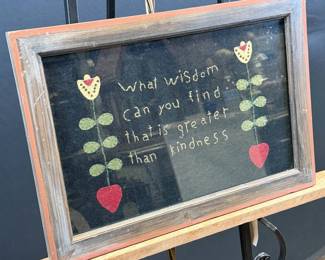 What wisdom
can you find
that is greater
than kindness